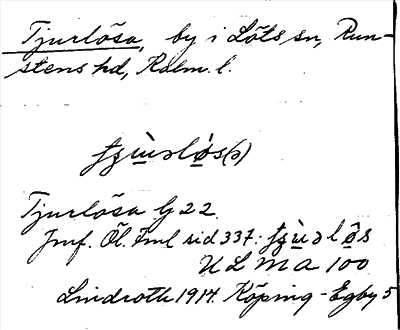 Tjurlösa, by i Löts sn, Run-
stens hd, Kalm. l.
Tjurlösa Gj 22.
Jmf. Öl. Fml sid 337:
U L M A 100
Lindroth 1914. Köping - Egby 5